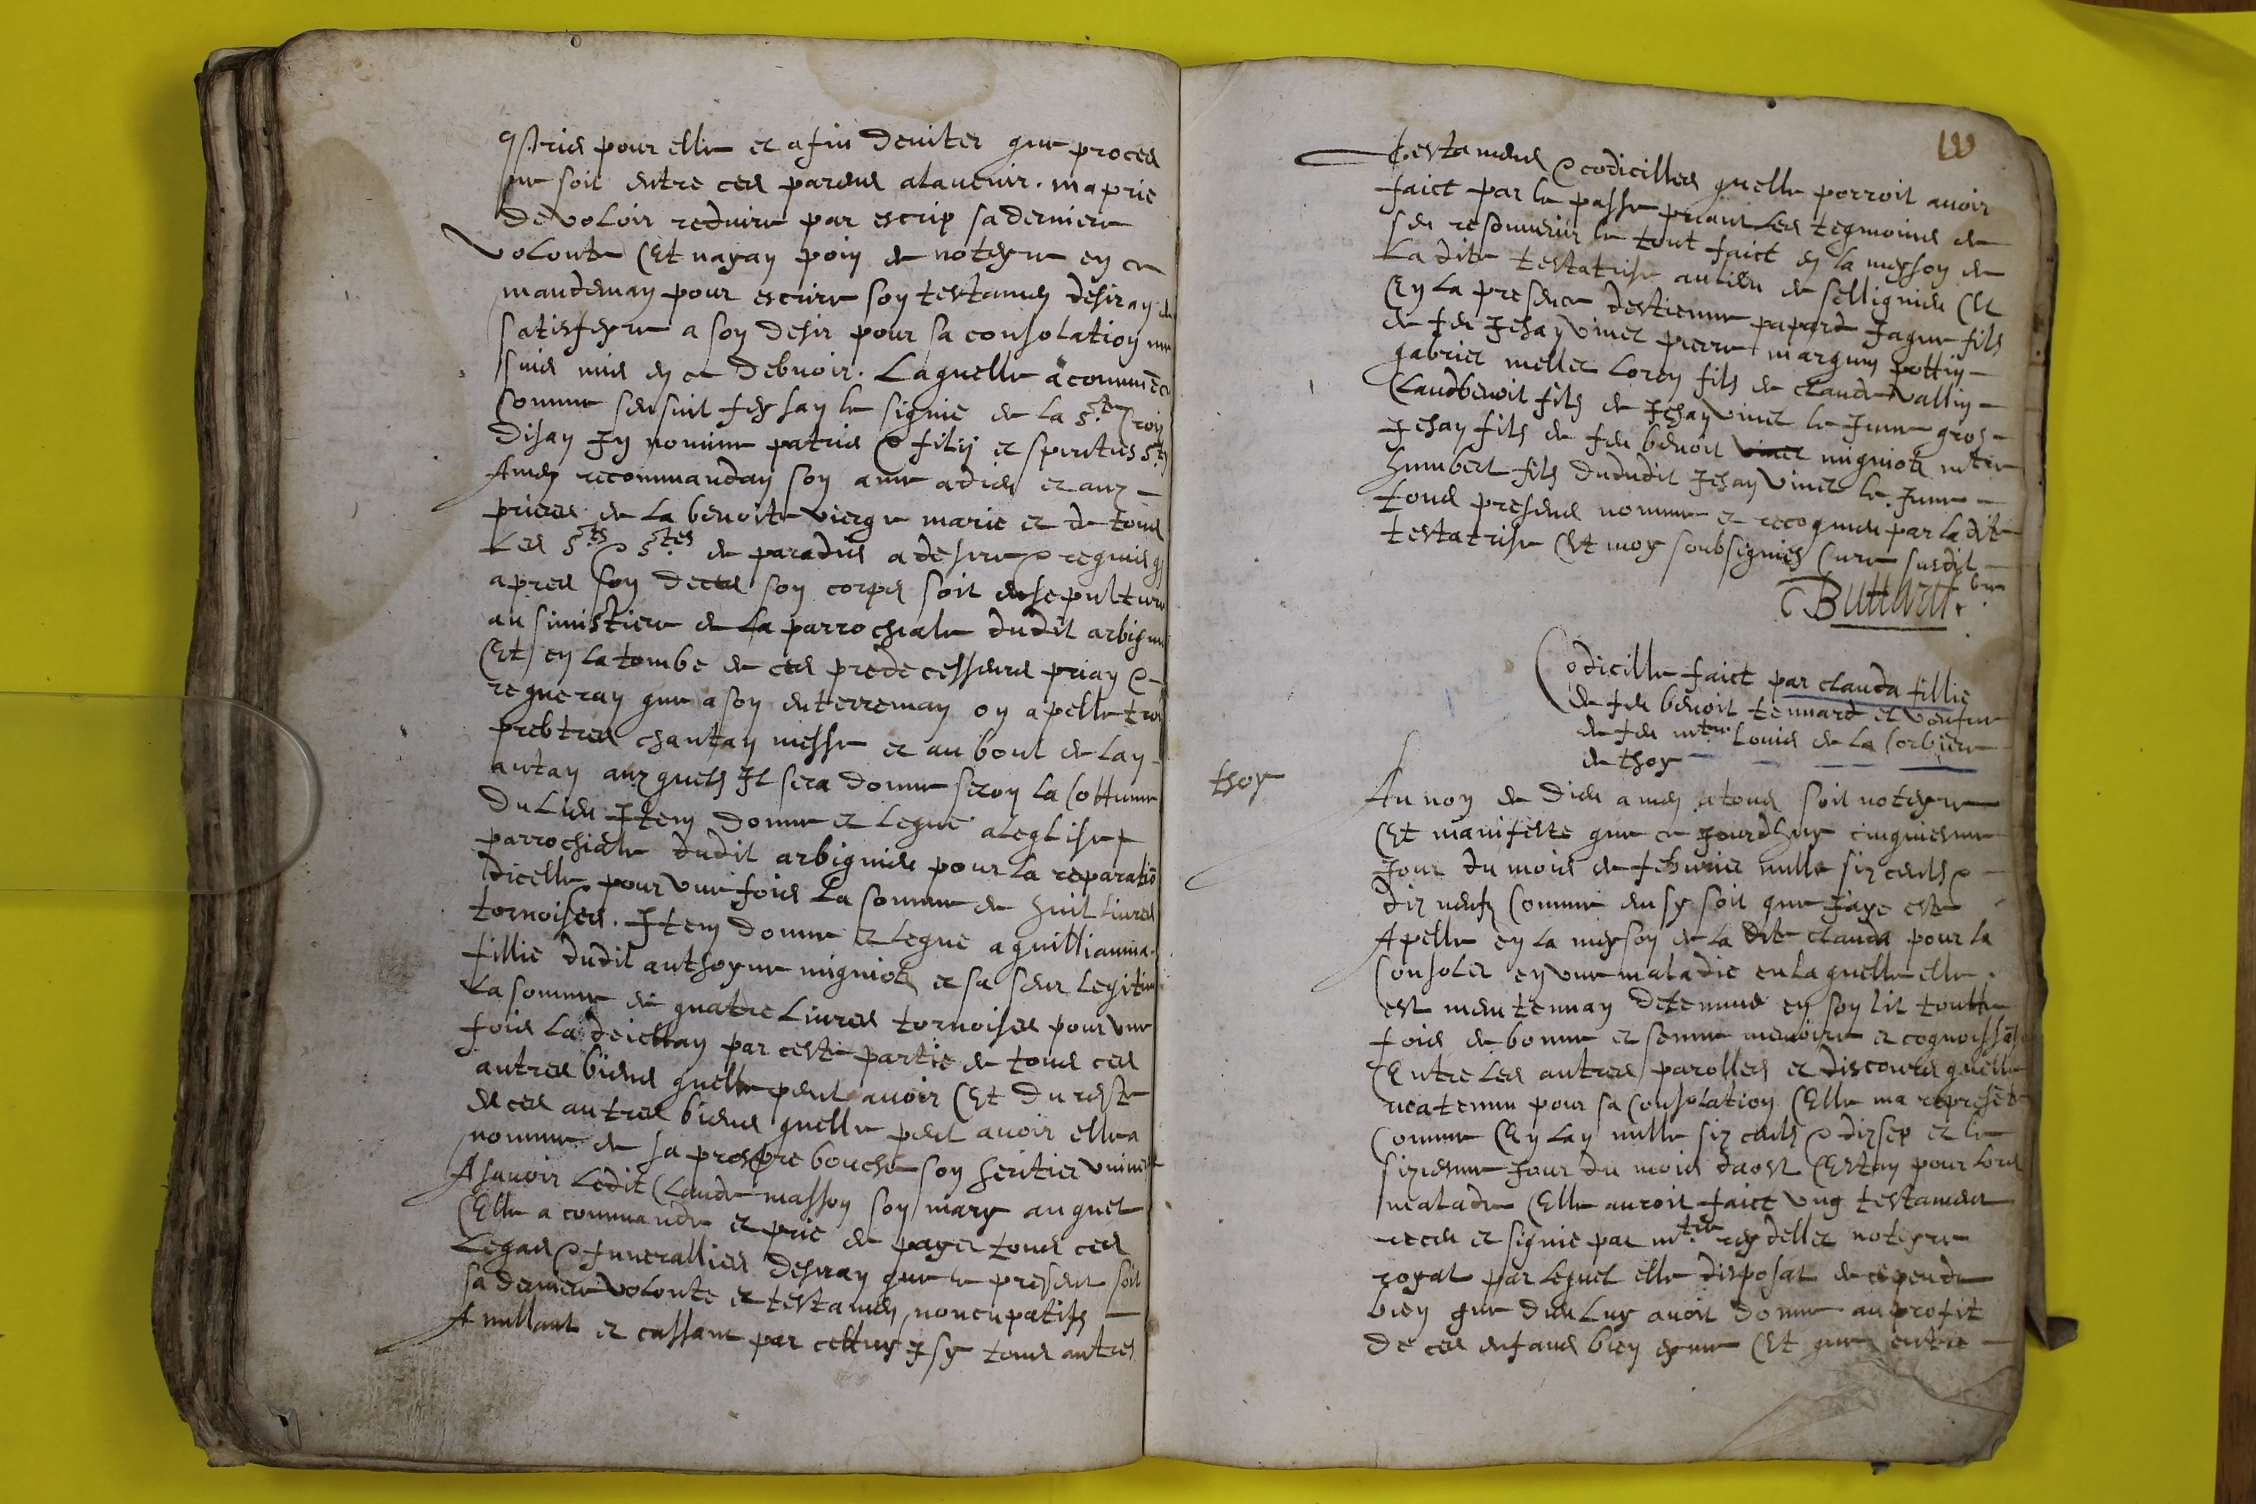 pris pour elle et afin deviter que proces
ne soit entre ces parens alavenir. ma prie
de voloir reduire par escrip sa derniere
volonte Et nayan poin de noteyre en ce
mandeman pour escrire son testamen desiran de
satisfeyre a son desir pour sa consolation me
suis mis en ce debvoir. Laquelle a commence
comme sensuit feysan le signe de la Ste Croix
disan In nomine patris & filij et spiritus Sti
Amen recommandan son ame a dieu et aux
prieres de la benoite vierge marie et de tous
Les Sts & Stes de paradis a desire & requis q
apres son deces son corps soit ensepulture
au simistiere de la parrochiale dudit arbignieu
Et en la tombe de ces predecesseurs prian &
requeran que a son enterreman on apelle trois
prebtres chantan messe et au bout de lan
autan auxquels Il sera donne selon la Cottume
du Lieu Item donne et legue a leglise
parrochiale dudit arbignieu pour la reparatio
dicelle pour une fois La somme de huit Livres
tornoises. Item donne et legue a guillianma
fillie dudit anthoyne migniot et sa seur legitime
La somme de quatre Livres tornoises pour une
fois la deiettan par ceste partie de tous ces
autres biens quelle peut avoir Et du reste
de ces autres biens quelle peut avoir elle a
nomme de sa propre bouche son heritier universel
Asavoir Ledit Claude masson son mary auquel
Elle a commande et prie de payer tous ces
Legas & funerallies desiran que le present soit
sa derniere volonte et testamen noncupatifs
Anullant et cassant par cettuy Isy tous autres
199
testamens & codicilles quelle porroit avoir
faict par le passe priant Les tegmoins de
sen resouvenir le tout faict en la meyson de
Ladite testatrise au lieu de sellignieu Et
En la presence destienne papard Jaque fils
de feu Jehan vinet pierre marguin pottin
gabriel mellet Loren fils de claude vallin
Claudbenoit fils de Jehan vinet le Jeune gros
Jehan fils de feu benoit vinet migniot mtre
humbert fils dududit Jehan vinet le Jeune
tous presens nomme et recognieu par ladite
testatrise Et moy soubsignies Cure susdit
Buttard Cure
Codicille faict par clauda fillie
de feu benoit tennard et vefve
de feu mtre Louis de la Corbiere
de thoy
thoy
Au non de dieu amen a tous soit noteyre
Et manifeste que ce Jourdhuy cinquiesme
Jour du mois de febvrier mille six cents &
dix neufz Comme ensy soit que Jaye este
Apelle en la meyson de la dite clauda pour la
consoler en une maladie en laquelle elle
est mentennan detenue en son lit toutte
fois de bonne et senne memoire et cognoissase
Entre Les autres parolles et discours quelle
mea tenu pour sa Consolation Elle ma represete
Comme En lan mille six cents & dixsep et le
sixiesme Jour du mois daost Estan pour lors
malade Elle auroit faict ung testament
receu et signe par mtre reydellet noteyre
royal par Lequel elle disposat de ce peu de
bien que dieu Luy avoit donne au profit
de ces enfans bien eyme Et que entre